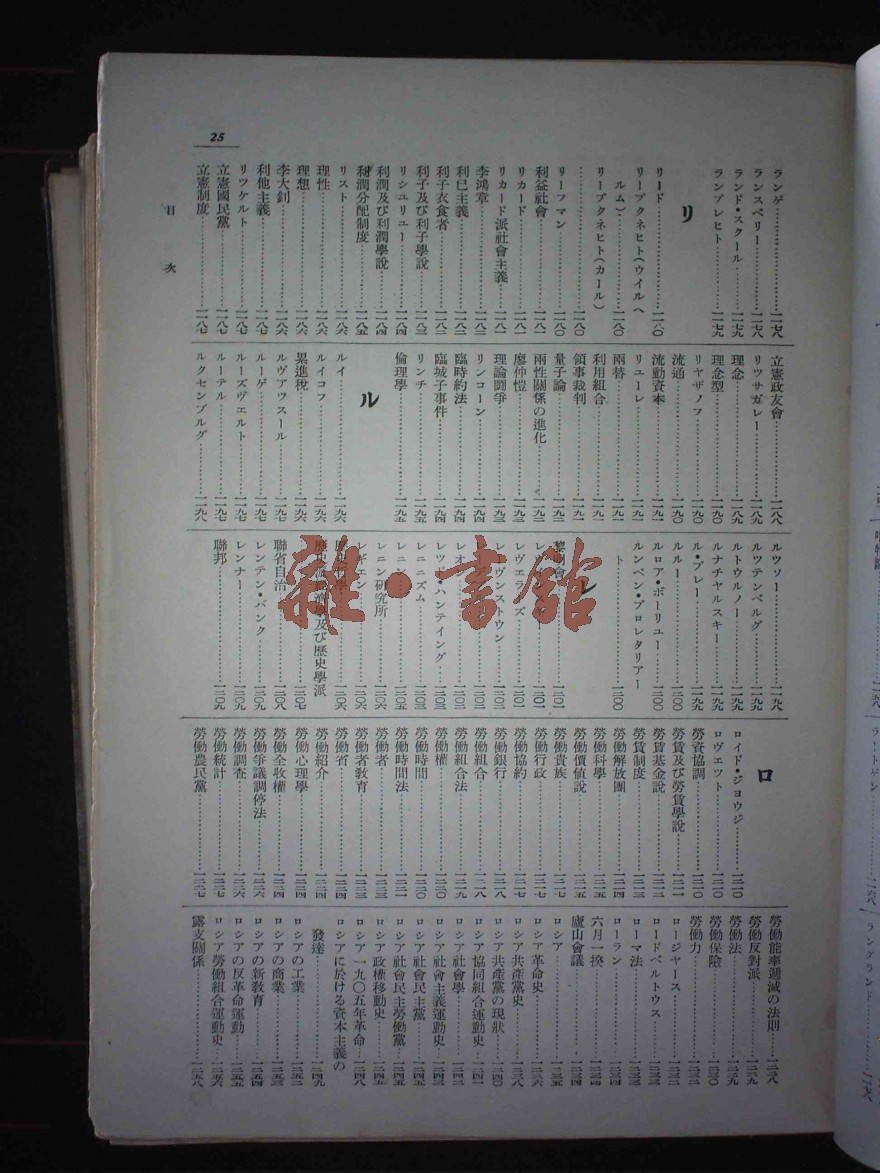 25
ランゲ……一一七八
ランスベリー……一一七八
ランド・スクール……一一七九
ランプレヒト……一一七九
リ
リード……一一八〇
リープクネヒト(ウイルヘ
ルム)……一一八〇
リープクネヒト(カール)
……一一八〇
リーフマン……一一八〇
利益社會……一一八一
リカード……一一八一
リカード派社會主義……一一八一
李鴻章……一一八二
利己主義……一一八二
利子衣食者……一一八二
利子及び利子學說……一一八三
リシユリユー……一一八四
利潤及び利潤學說……一一八四
利潤分配制度……一一八五
リスト……一一八六
理性……一一八六
理想……一一八六
李大釗……一一八六
利他主義……一一八七
リツケルト……一一八七
立憲國民黨……一一八七
立憲制度……一一八七
目次
立憲政友會……一一八八
リツサガレー……一一八九
理念……一一八九
理念型……一一九〇
リヤザノフ……一一九〇
流通……一一九〇
流動資本……一一九一
リユーレ……一一九一
兩替……一一九一
利用組合……一一九一
領事裁判……一一九一
量子論……一一九二
兩性關係の進化……一一九二
廖仲愷……一一九三
理論鬪爭……一一九三
リンコーン……一一九四
臨時約法……一一九四
臨城子事件……一一九四
リンチ……一一九五
倫理學……一一九五
ル
ルイ……一一九六
ルイコフ……一一九六
累進稅……一一九六
ルヴアツスール……一一九七
ルーゲ……一一九七
ルーズヴェルト……一一九七
ルーテル……一一九七
ルクセンブルグ……一一九八
ルツソー……一一九八
ルツテンベルグ……一一九九
ルトウルノー……一一九九
ルナチヤルスキー……一一九九
ル・プレー……一一九九
ルルー……一二〇〇
ルロア・ボーリユー……一二〇〇
ルンペン・プロレタリアー
ト……一二〇〇
レ
レヴェラーズ……一二〇一
レ・ハンテイング……一二〇三
レニニズム……一二〇三
レニン……一二〇五
レニン研究所……一二〇六
及び歷史學派
……一二〇七
聯省自治……一二〇八
レンテン・バンク……一二〇九
レンナー……一二〇九
聯邦……一二〇九
ロ
ロイド・ジヨウジ……一二一〇
ロヴェツト……一二一〇
勞資協調……一二一〇
勞賃及び勞賃學說……一二一一
勞賃基金說……一二一三
勞賃制度……一二一三
勞働解放團……一二一四
勞働科學……一二一五
勞働價値說……一二一五
勞働貴族……一二一七
勞働行政……一二一七
勞働協約……一二一七
勞働銀行……一二一八
勞働組合……一二一八
勞働組合法……一二一九
勞働權……一二二〇
勞働時間……一二二〇
勞働時間法……一二二一
勞働者……一二二三
勞働者敎育……一二二三
勞働省……一二二四
勞働紹介……一二二四
勞働心理學……一二二四
勞働全收權……一二二四
勞働爭議調停法……一二二六
勞働調査……一二二六
勞働統計……一二二七
勞働農民黨……一二二七
勞働能率遞減の法則……一二二八
勞働反對派……一二二九
勞働法……一二二九
勞働保險……一二三〇
勞働力……一二三二
ロージヤース……一二三三
ロードベルトウス……一二三三
ローマ法……一二三三
ローラン……一二三四
六月一揆……一二三四
廬山會議……一二三四
ロシア……一二三五
ロシア革命史……一二三六
ロシア共產黨史……一二三八
ロシア共產黨の現狀……一二四〇
ロシア協同組合運動史……一二四一
ロシア社會學……一二四二
ロシア社會主義運動史……一二四三
ロシア社會民主黨……一二四五
ロシア社會民主勞働黨……一二四五
ロシア政權移動史……一二四五
ロシア一九〇五年革命……一二四八
ロシアに於ける資本主義の
發達……一二四九
ロシアの工業……一二五二
ロシアの商業……一二五三
ロシアの新敎育……一二五四
ロシアの反革命運動……一二五五
ロシア勞働組合運動史……一二五六
露支關係……一二五八
雜・書館